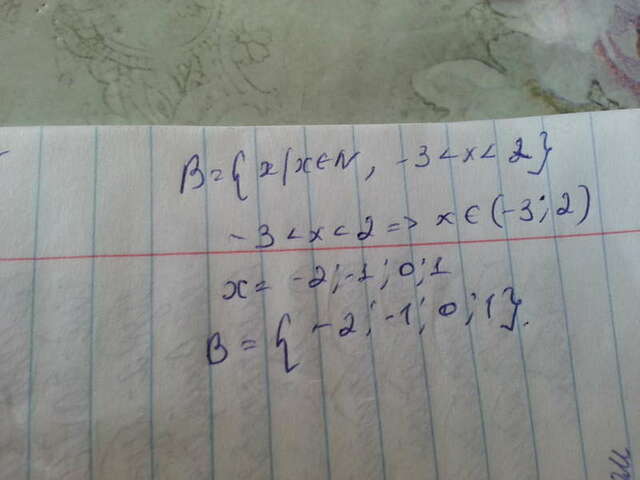 B={x/x∈N, -3<x<2}
-3<x<2=>x∈(-3;2)
x= -2;-1;0;1
B={-2;-1;0;1}.